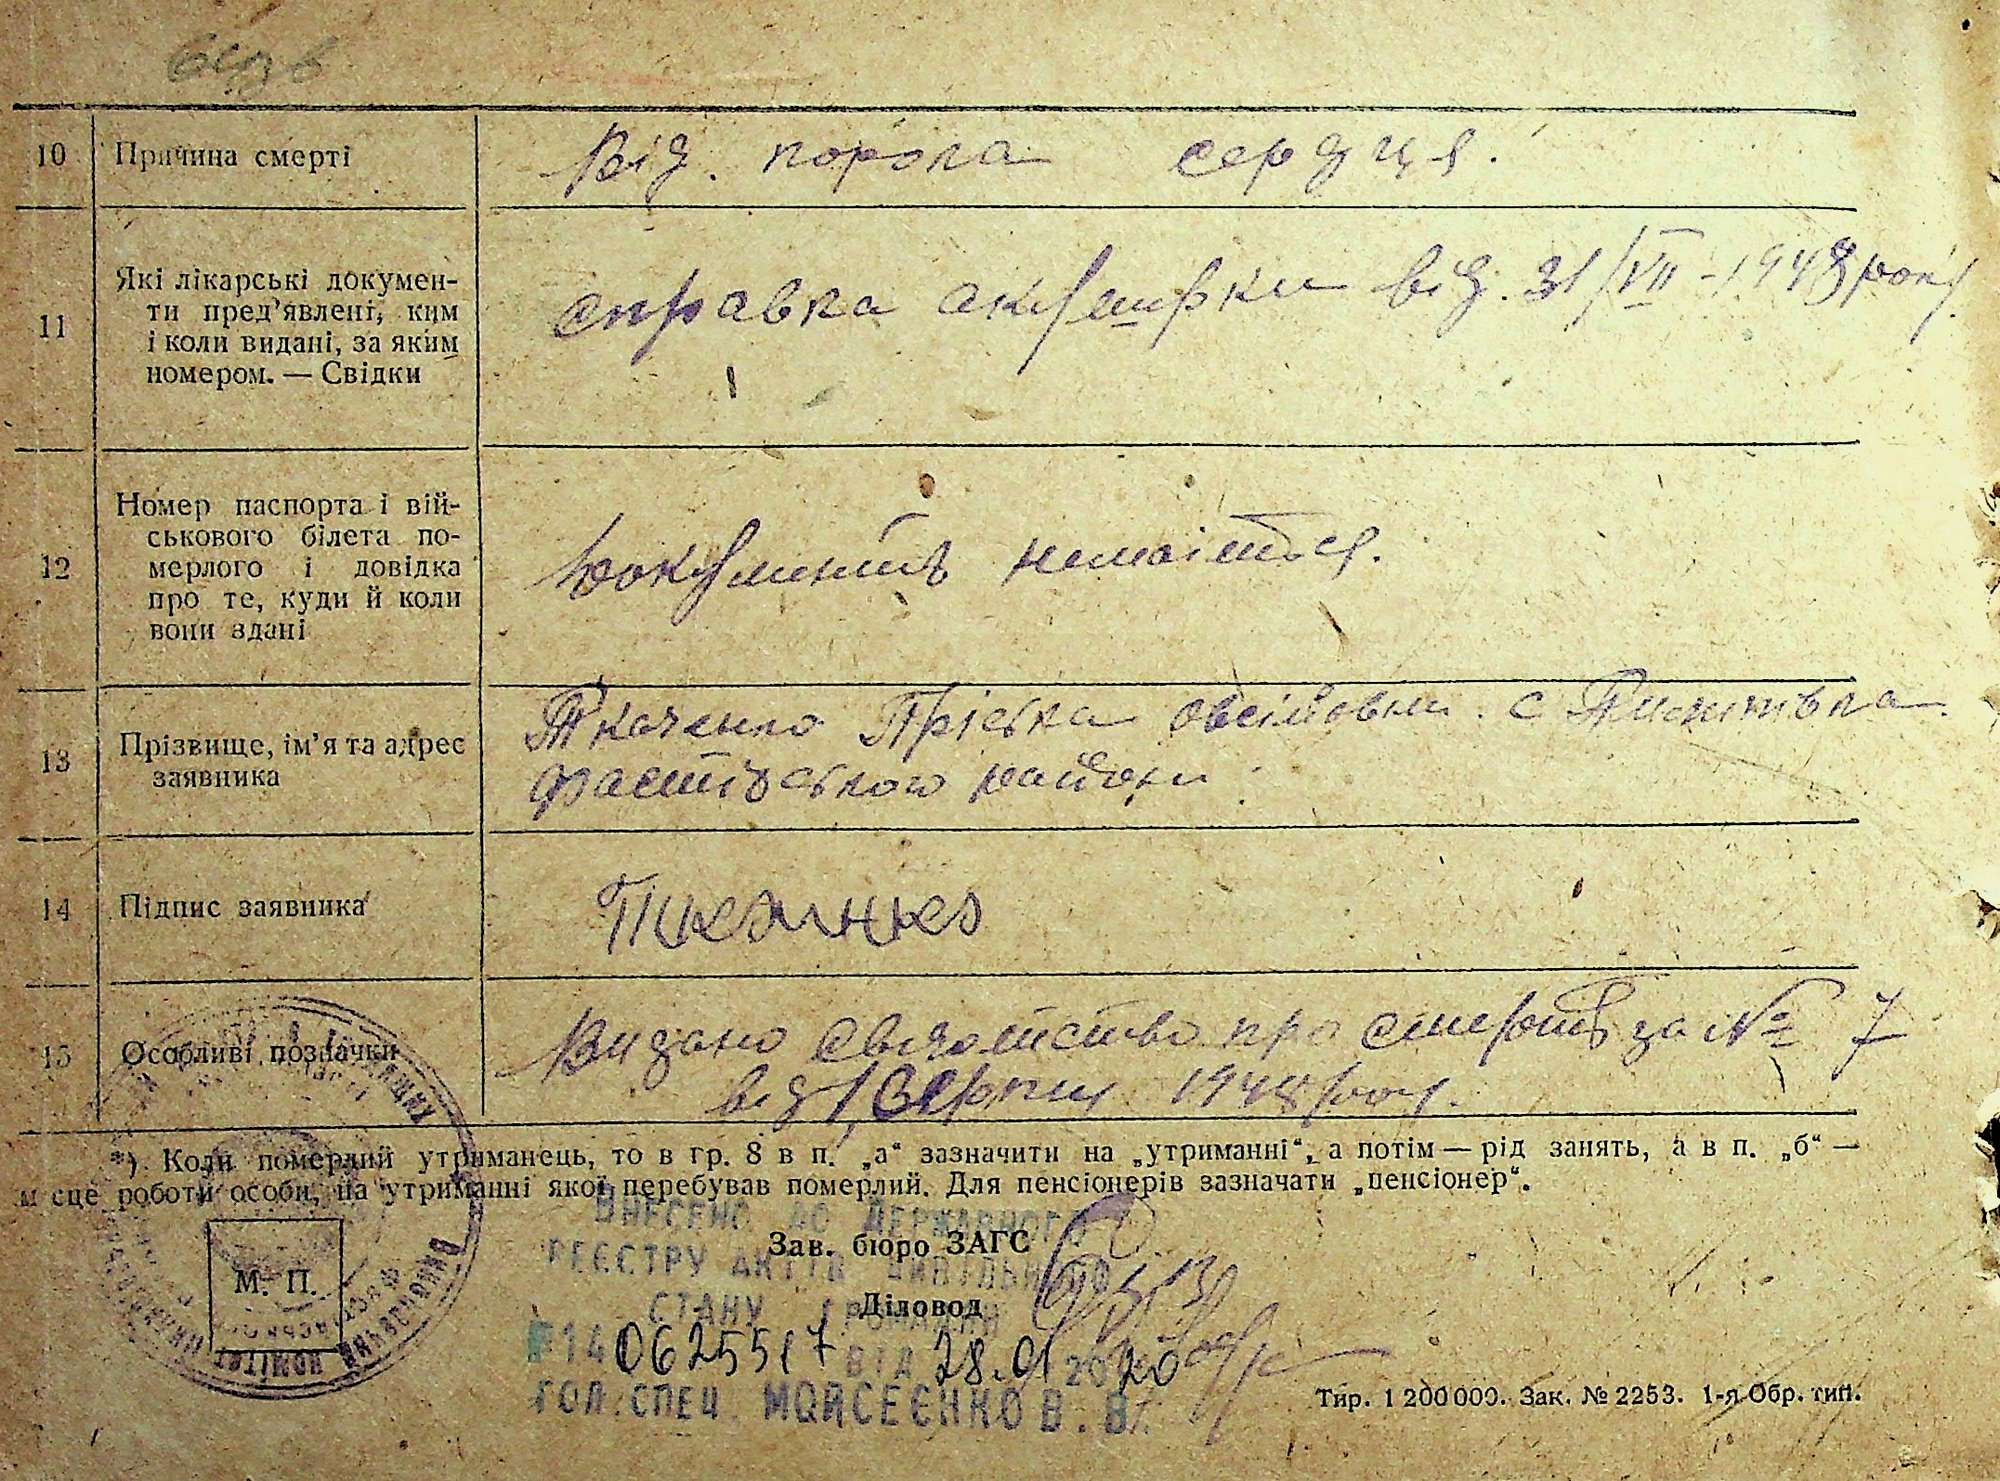 10 Причина смерті Від. порога сердця.
11 Які лікарські докумен-
ти пред'явлені, ким
і коли видані, за яким
номером. — Свідки
справка акушерки від. 31/VII - 1948 року.
12 Номер паспорта і вій-
ськового білета по-
мерлого і довідка
про те, куди й коли
вони здані
немаіться.
13 Прізвище, ім'я та адрес
заявника
Ткаченко Пріська с
Фастівського району.
14 Підпис заявника
15 Особливі позначки
Видано свідоцтво про смерть за № 7
від 1 серпня 1948 року.
*) Коли померлий утриманець, то в гр. 8 в п. „а“ зазначити на „утриманні“, а потім — рід занять, а в п. „б“ —
м сце роботи особи, на утриманні якої перебував померлий. Для пенсіонерів зазначати „пенсіонер“.
М. П.
Зав. бюро ЗАГС
Діловод
ВНЕСЕНО ДО ДЕРЖАВНОГО
РЕЄСТРУ АКТІВ ЦИВІЛЬНОГО
СТАНУ ГРОМАДЯН
0625517 ВІД 28.01 2020
ГОЛ. СПЕЦ. МОЙСЕЄНКО В. В.
Тир. 1 200 000. Зак. № 2253. 1-я Обр. тип.